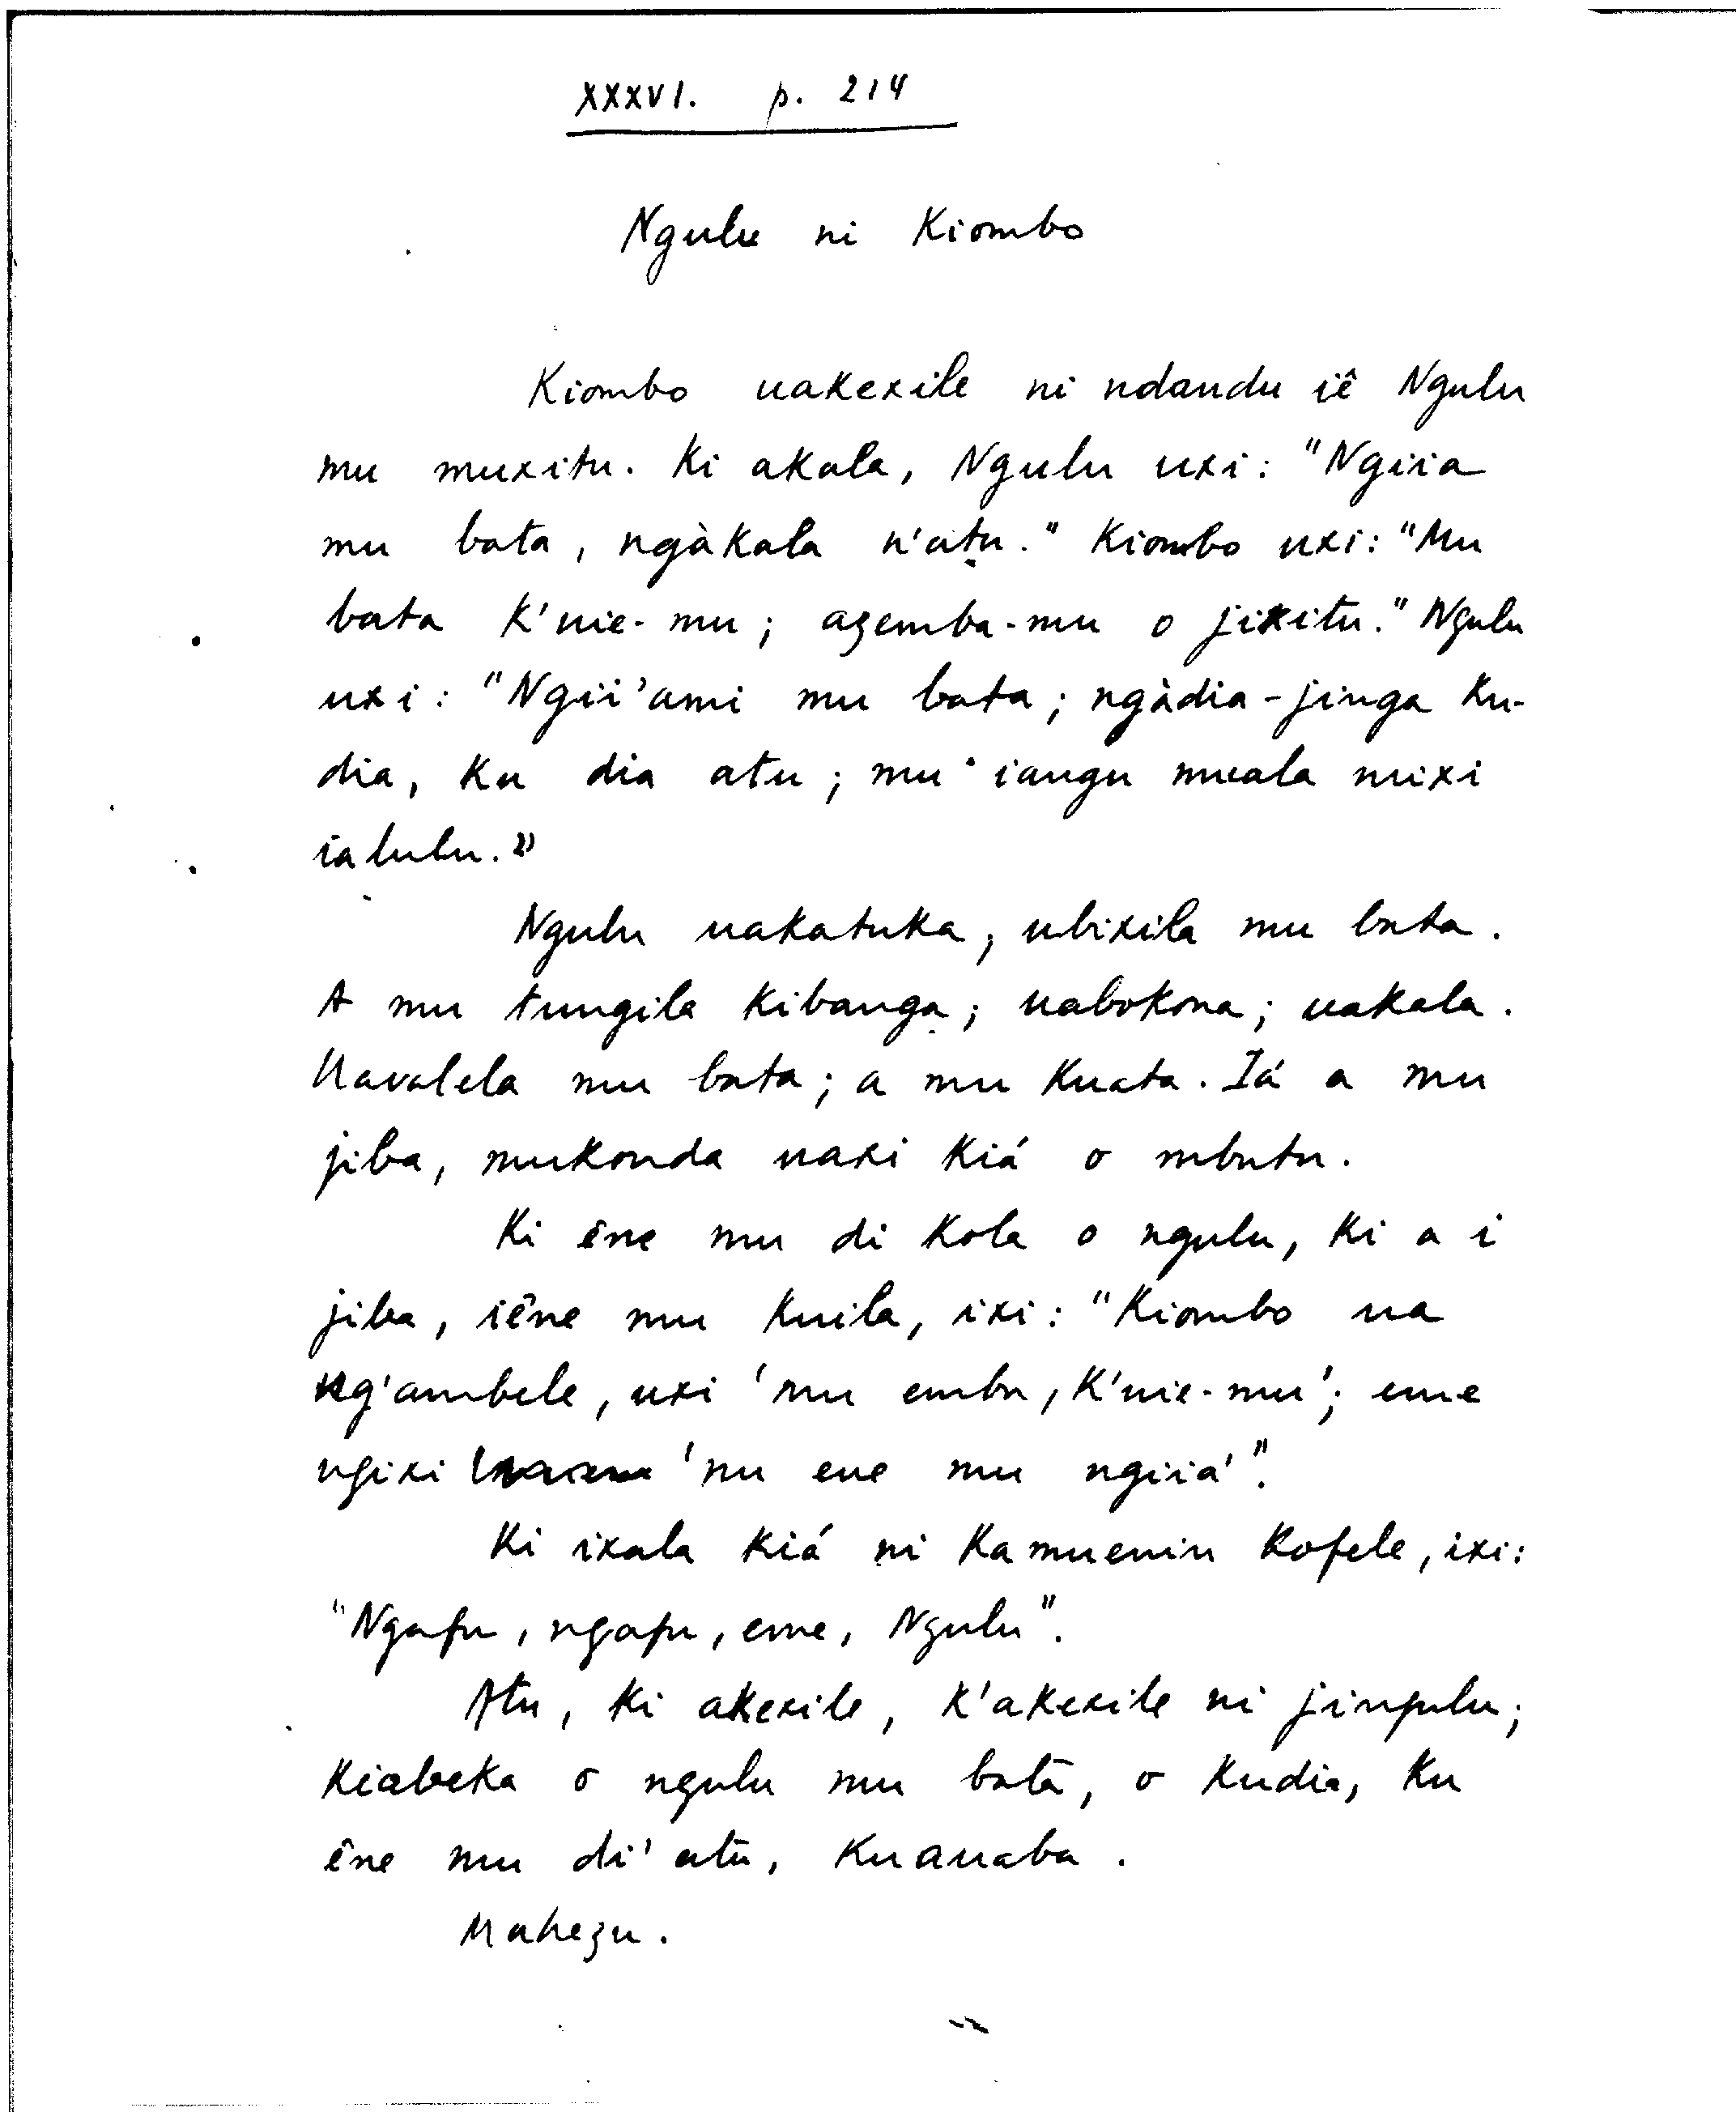 XXXVI. p. 214
Ngulu ni Kiombo
Kiombo uakexile ni ndandu iê Ngulu
mu muxitu. Ki akala, Ngulu uxi: "Ngiia
mu bata, ngàkala n'atu." Kiombo uxi: "Mu
bata k'uie-mu; azemba-mu o jixitu." Ngulu
uxi: "Ngii'ami mu bata; ngàdia-jinga ku-
dia, ku dia atu; mu iangu muala mixi
ialulu."
Ngulu uakatuka, ubixila mu bata.
A mu tungila kibanga; uabokona; uakala.
Uavalela mu bata; a mu kuata. Iá a mu
jiba, mukonda uaxi kiá o mbutu.
Ki êne mu di kola o ngulu, ki a i
jiba, iêne mu kuila, ixi: "Kiombo ua
ng'ambele, uxi 'mu embu, k'uie-mu'; eme
ngixi 'mu ene mu ngiiá'".
Ki ixala kiá ni kamueniu kofele, ixi:
"Ngafu, ngafu, eme, Ngulu".
Atu, ki akexile, k'akexile ni jingulu;
kiabeka o ngulu mu bata, o kudia, ku
êne mu di' atu, kuauaba.
Mahezu.